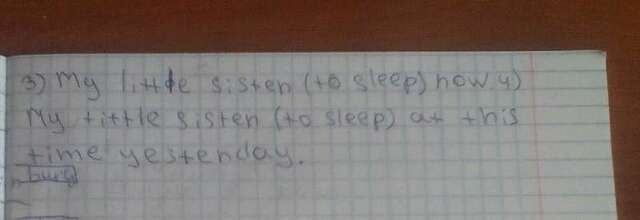 3) My little sister (to sleep) now 4)
My little sister (to sleep) at this
time yesterday.